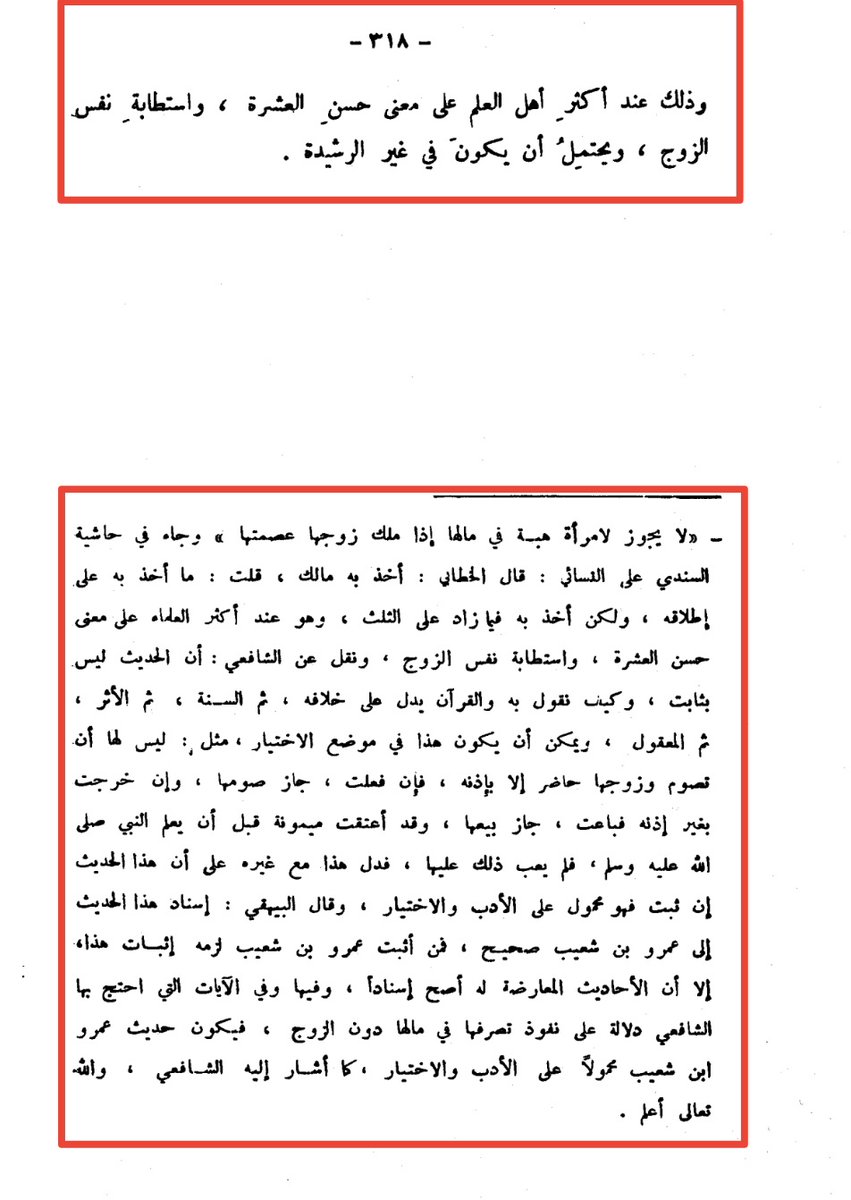 - ٣١٨ -
وذلك عند أكثرِ أهل العلم على معنى حسنِ العشرة ، واستطابةِ نفس
الزوج ، ويحتملُ أن يكونَ في غير الرشيدة .
- «لا يجوز لامرأة هبة في مالها إذا ملك زوجها عصمتها » وجاء في حاشية
السندي على النسائي : قال الخطابي : أخذ به مالك ، قلت : ما أخذ به على
إطلاقه ، ولكن أخذ به فيما زاد على الثلث ، وهو عند أكثر العلماء على معنى
حسن العشرة ، واستطابة نفس الزوج ، ونقل عن الشافعي : أن الحديث ليس
بثابت ، وكيف نقول به والقرآن يدل على خلافه ، ثم السنة ، ثم الأثر ،
ثم المعقول ، ويمكن أن يكون هذا في موضع الاختيار ، مثل : ليس لها أن
تصوم وزوجها حاضر إلا بإذنه ، فإن فعلت ، جاز صومها ، وإن خرجت
بغير إذنه فباعت ، جاز بيعها ، وقد أعتقت ميمونة قبل أن يعلم النبي صلى
الله عليه وسلم ، فلم يعب ذلك عليها ، فدل هذا مع غيره على أن هذا الحديث
إن ثبت فهو محمول على الأدب والاختيار ، وقال البيهقي : إسناد هذا الحديث
إلى عمرو بن شعيب صحيح ، فمن أثبت عمرو بن شعيب لزمه إثبات هذا ،
إلا أن الأحاديث المعارضة له أصح إسناداً ، وفيها وفي الآيات التي احتج بها
الشافعي دلالة على نفوذ تصرفها في مالها دون الزوج ، فيكون حديث عمرو
ابن شعيب محمولاً على الأدب والاختيار ، كما أشار إليه الشافعي ، والله
تعالى أعلم .